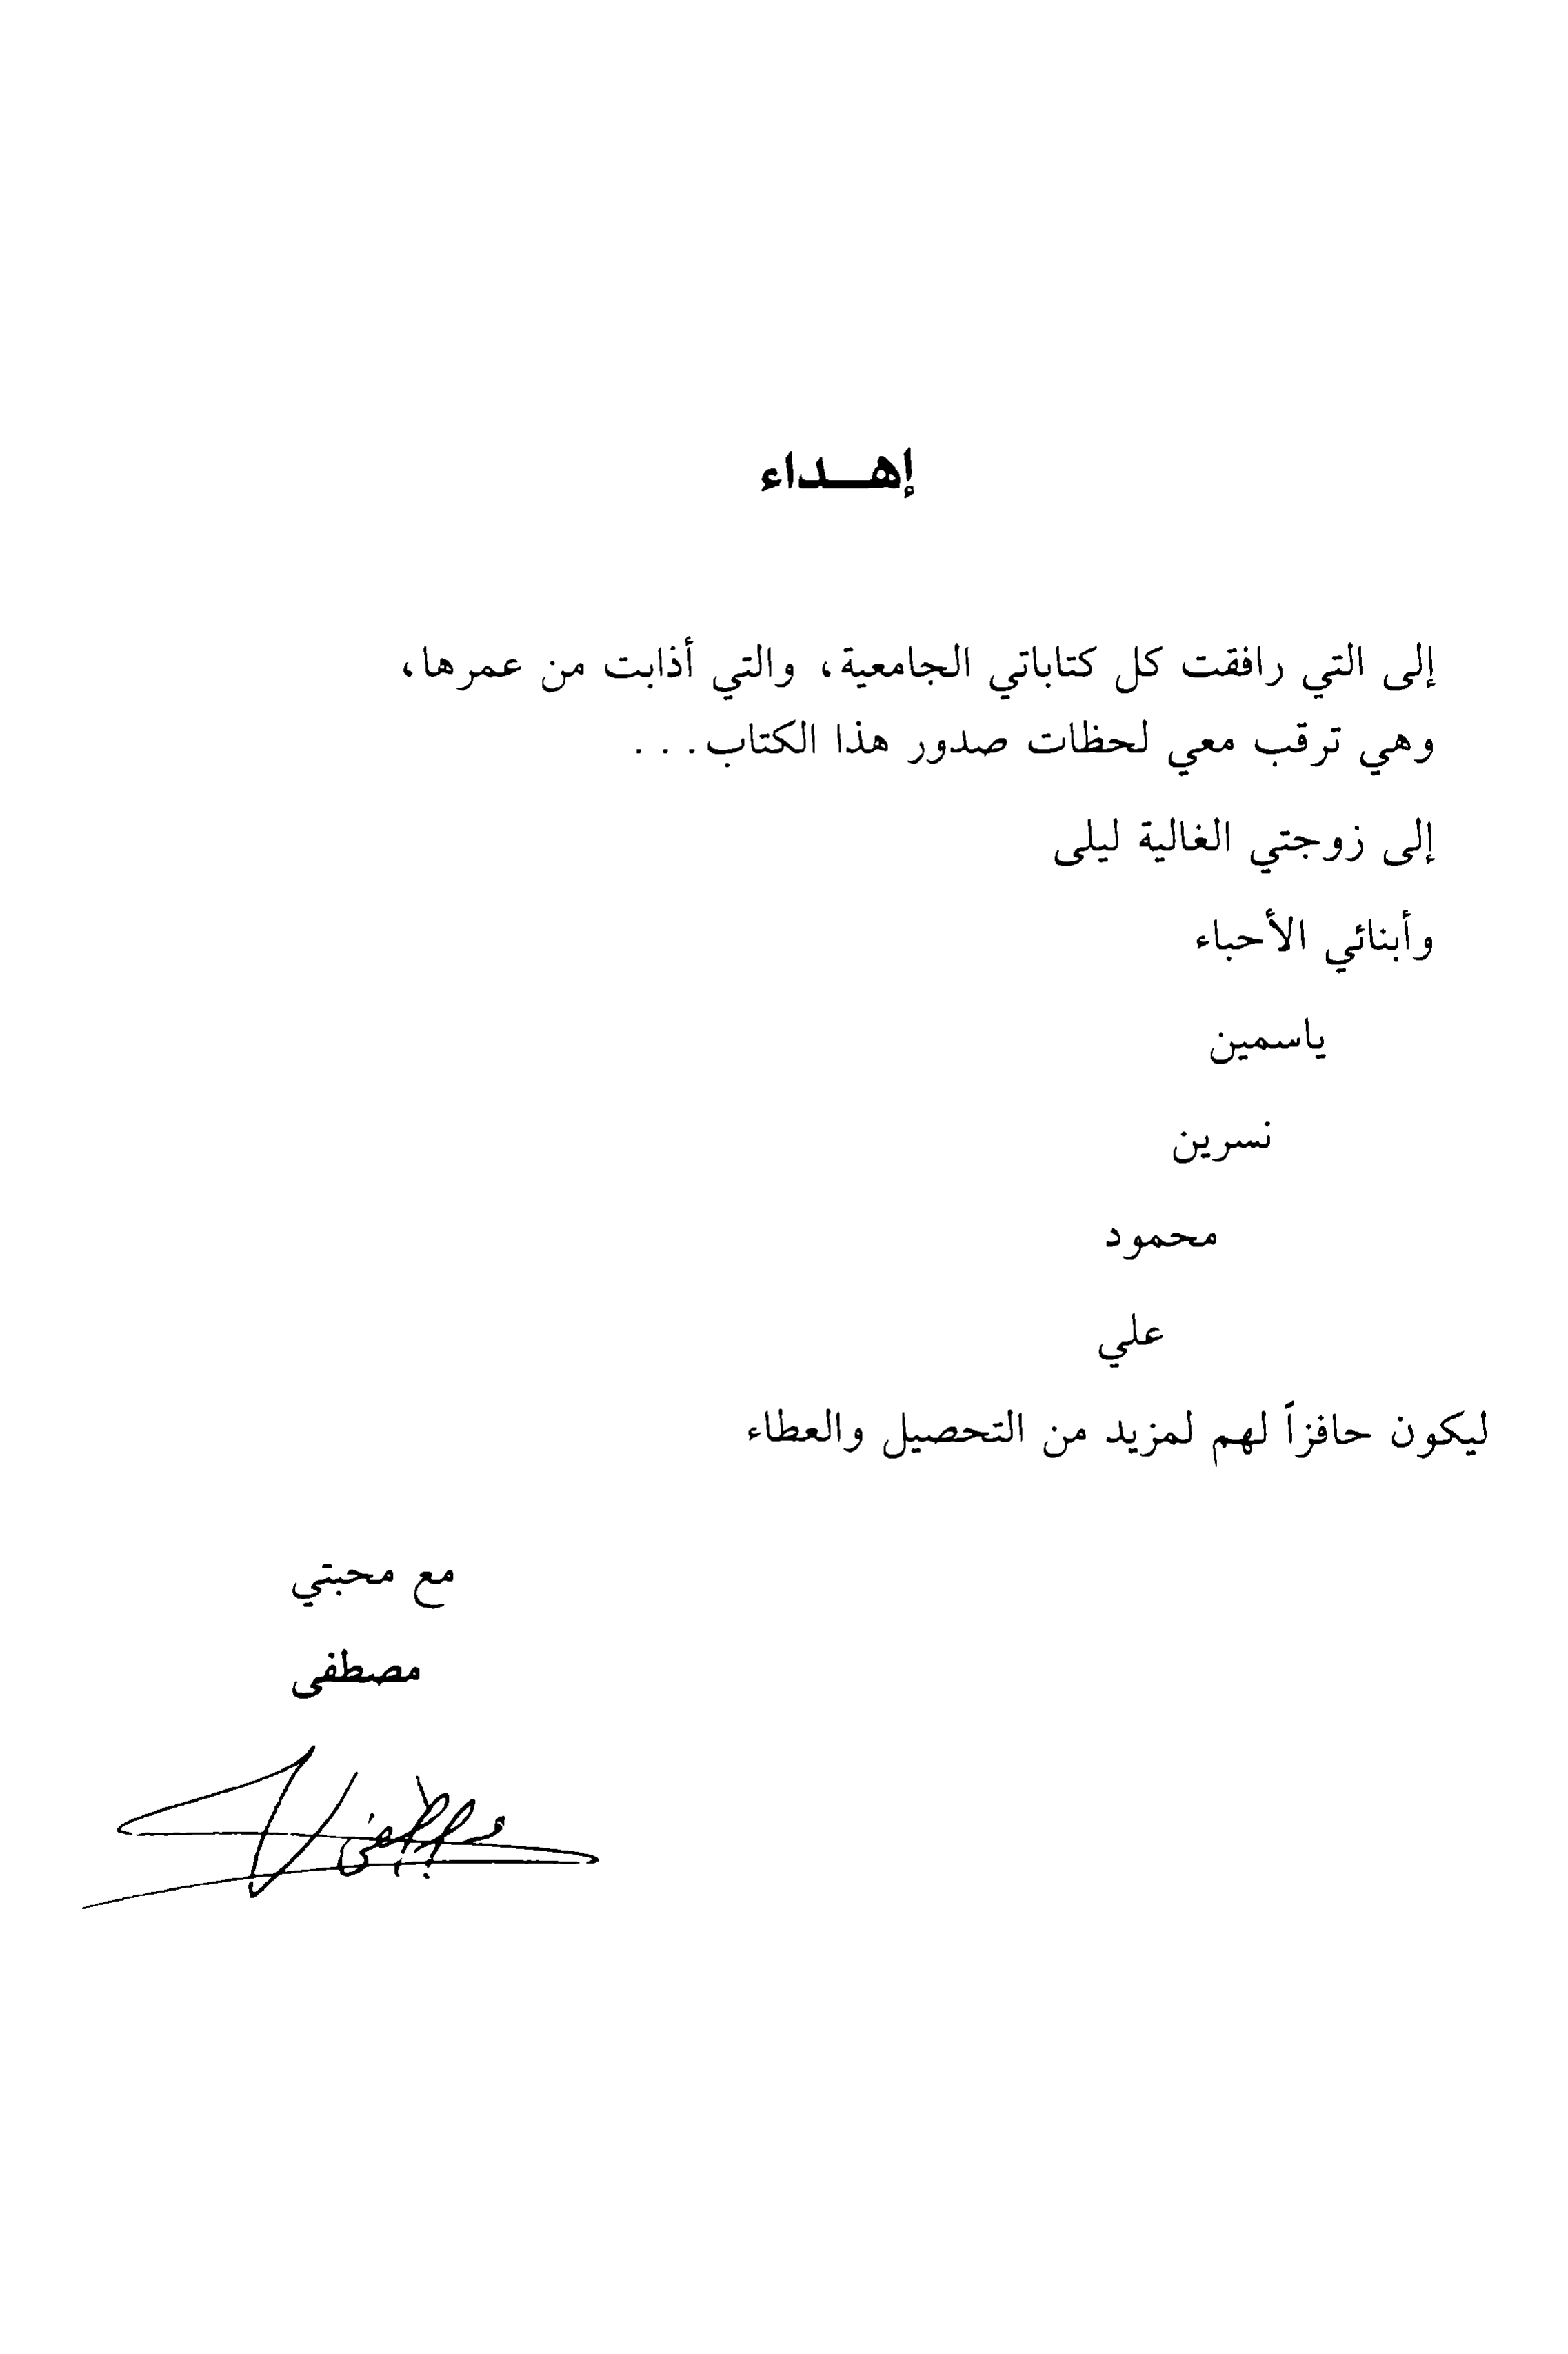 إهــداء
إلى التي رافقت كل كتاباتي الجامعية، والتي أذابت من عمرها،
وهي ترقب معي لحظات صدور هذا الكتاب...
إلى زوجتي الغالية ليلى
وأبنائي الأحباء
ياسمين
نسرين
محمود
علي
ليكون حافزاً لهم لمزيد من التحصيل والعطاء
مع محبتي
مصطفى